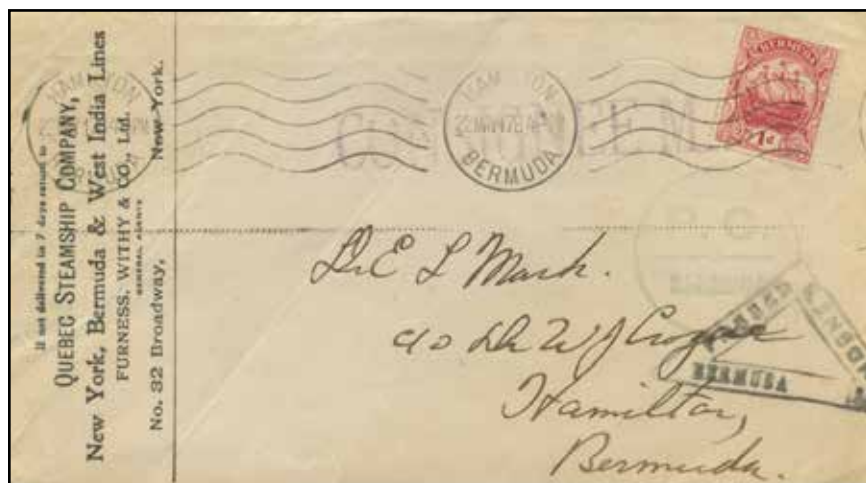 If not delivered in 7 days return to
QUEBEC STEAMSHIP COMPANY,
New York, Bermuda & West India Lines
FURNESS, WITHY & CO., Ltd.
GENERAL AGENTS
No. 32 Broadway, New York.
HAMILTON
HAMILTON
BERMUDA
BERMUDA
1d
P. C.
Dr E L Mark.
c/o Dr W J
Hamilton,
Bermuda.
PASSED
CENSOR
BERMUDA